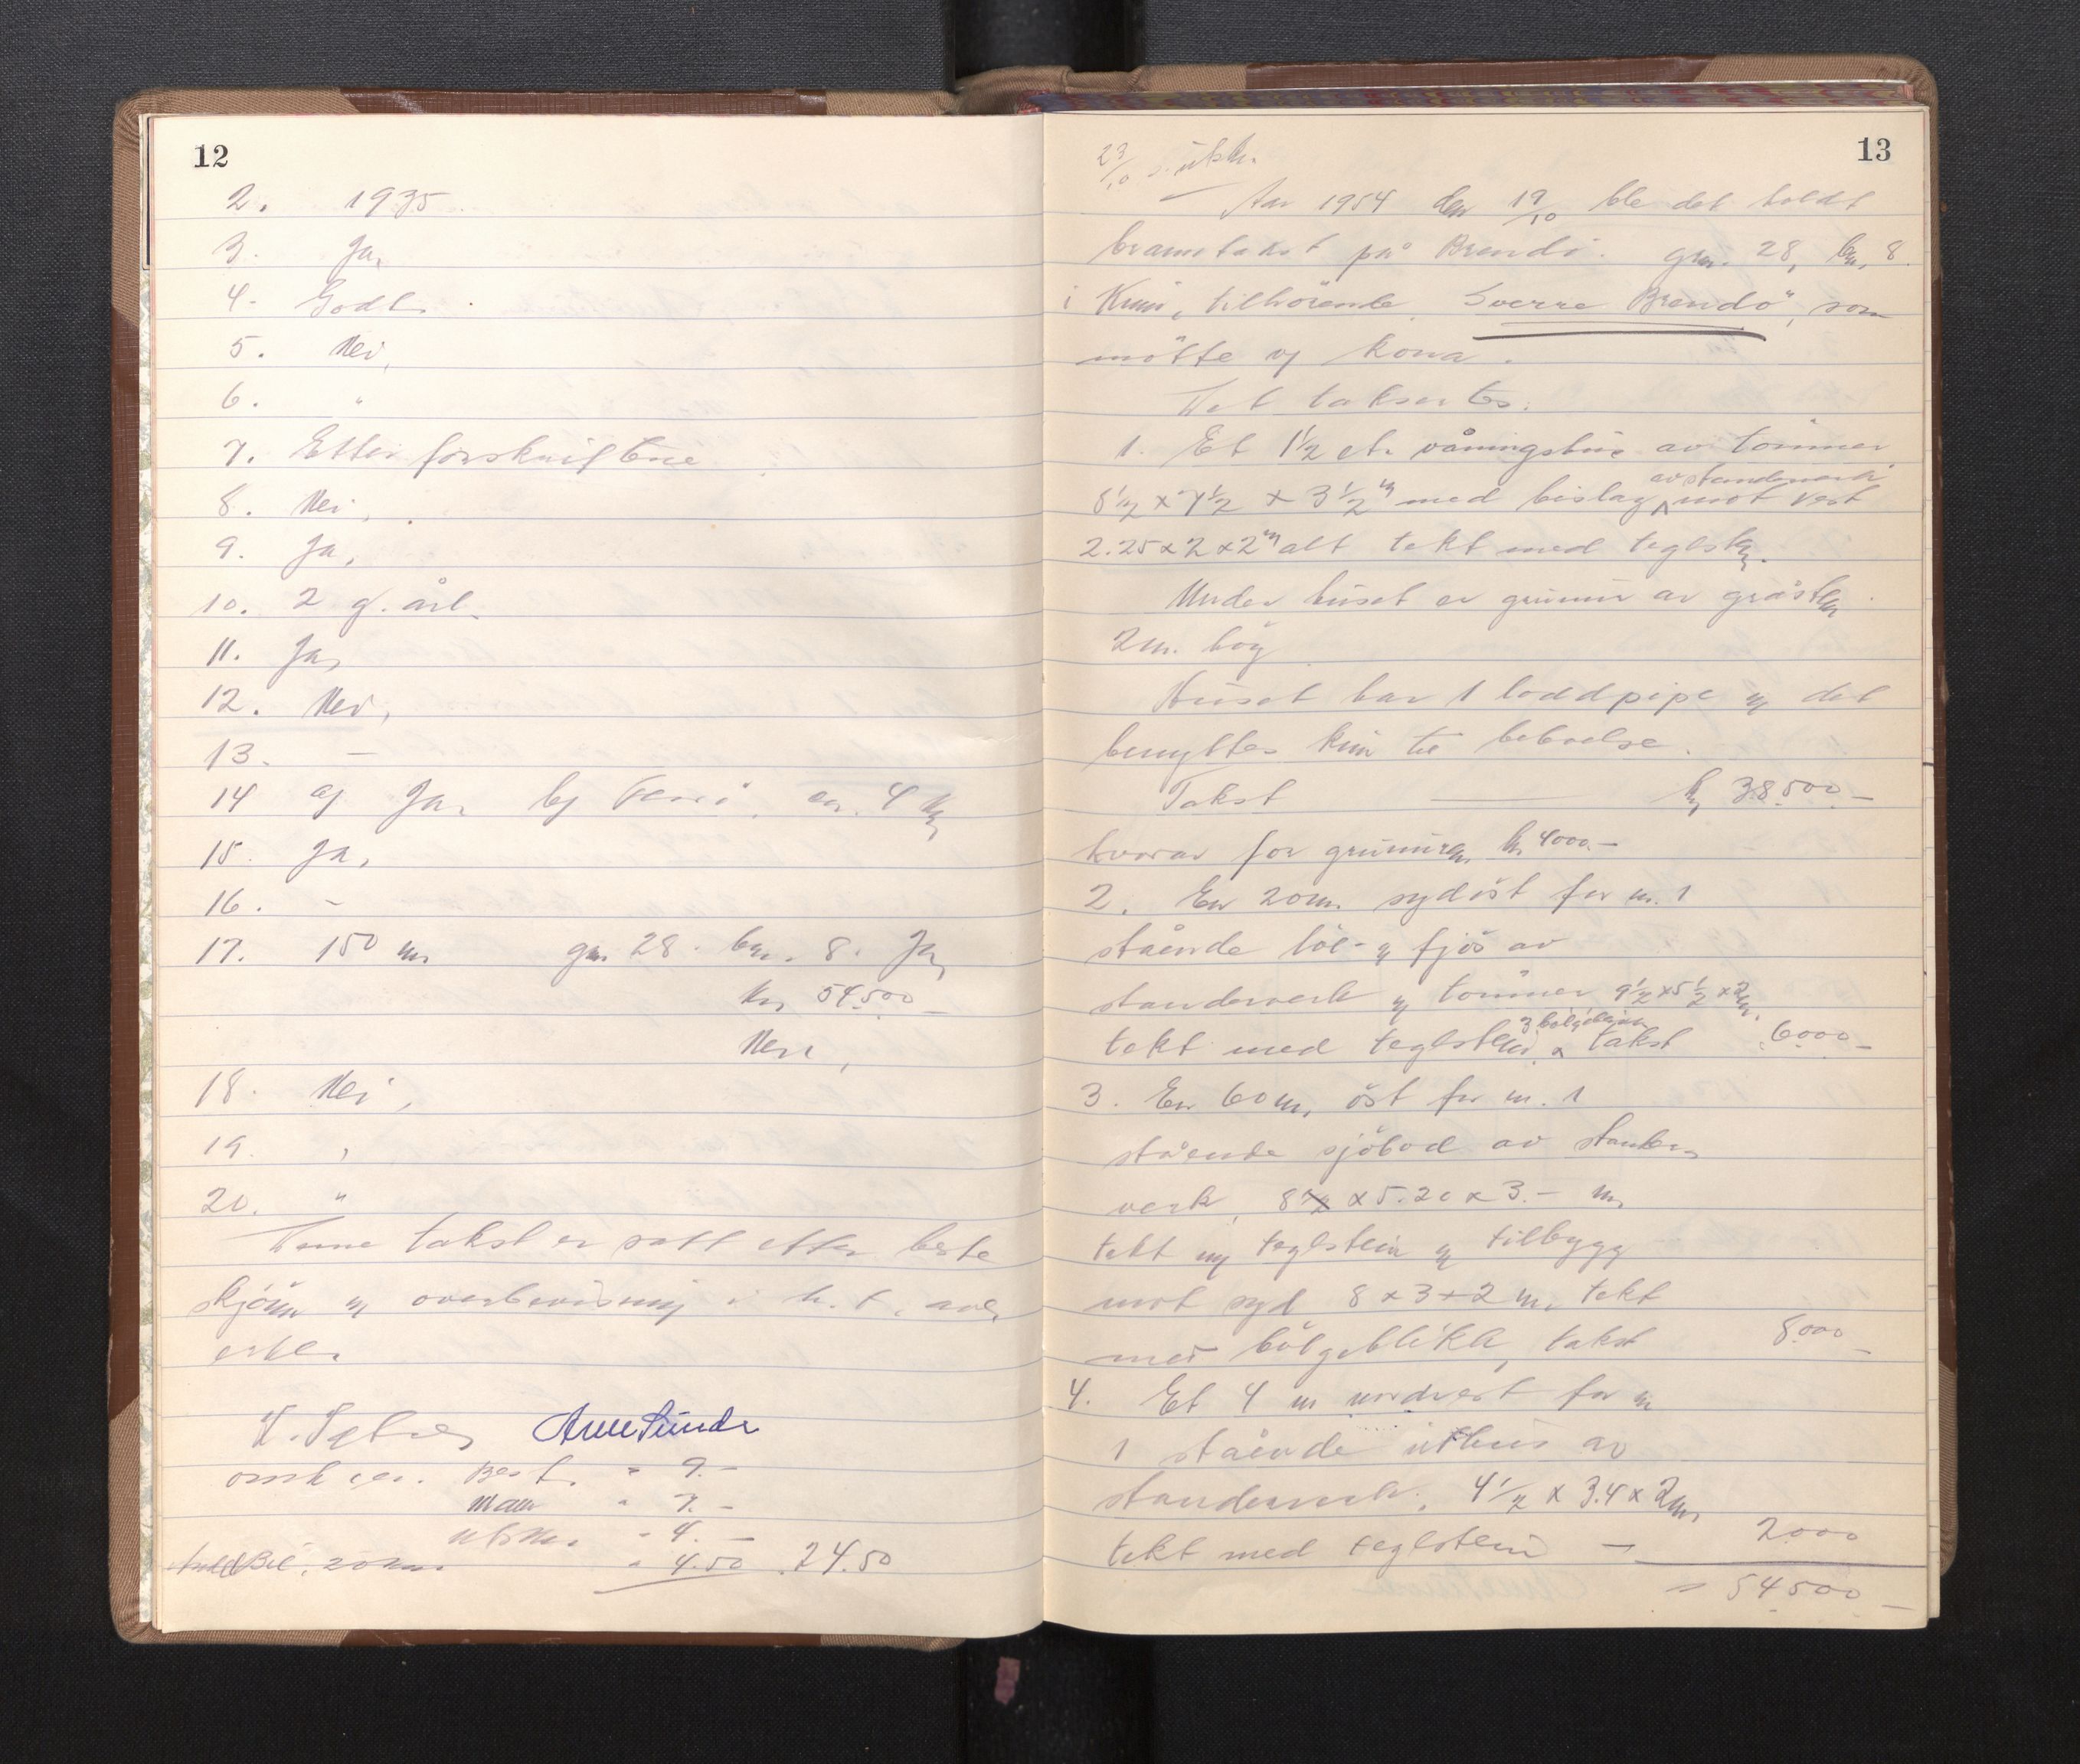 12
2. 1935
3. Ja,
4. Godt.
5. Nei,
6. "
7. Etter forskriftene
8. Nei,
9. Ja,
10. 2 g. årl.
11. Ja,
12. Nei,
13. –
14 a) Ja, b) ca. 4 km
15. Ja,
16. –
17. 150 m gnr. 28. bnr. 8. Ja,
kr. 54500 –
Nei,
18. Nei,
19. "
20. "
Denne takst er satt etter beste
skjönn og overbevisning i h. t. avl.
erkl.
Arne Sunde
Best. " 9.–
Mann " 7.–
Utskr. " 4.–
Bil, 20 km. " 4.50 24.50
13
23/10 s. utskr.
Aar 1954 den 19/10 ble det holdt
branntakst på Brendö. gnr. 28, bnr. 8.
i Kinn, tilhörende "Sverre Brendö", som
mötte og kona.
Det taksertes:
1. Et 1½ et. våningshus av tömmer
8½ x 7½ x 3½ m med bislag av standerverk mot vest
2.25 x 2 x 2 m alt tekt med teglsten.
Under huset er grunnmur av gråsten
2 m. höy
Huset har 1 loddpipe og det
benyttes kun til beboelse.
Takst kr 38.500.–
hvorav for grunnmuren kr. 4000.–
2. En 20 m. sydöst for nr. 1
stående löe- og fjös av
standerverk og tömmer 9½ x 5½ x 2 m.
tekt med teglstein & bölgeblikk takst 6000 –
3. En 60 m. öst for nr. 1
stående sjöbod av stander-
verk, 8 x 5.20 x 3.– m,
tekt m/ teglstein og tilbygg
mot syd 8 x 3 x 2 m, tekt
med bölgeblikk, takst 8.000 –
4. Et 4 m nordvest for nr
1 stående uthus av
standerverk, 4½ x 3.4 x 2 m,
tekt med teglstein – 2000
= 54.500 –